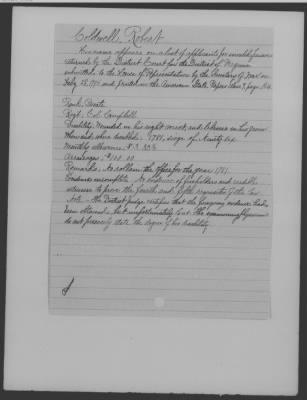 Coldwell, Robert
His name appears on a list of applicants for invalid pension
returned by the District Court for the District of Virginia
submitted to the House of Representatives by the Secretary of War on
Feby 25, 1795 and printed in the American State Papers Class 9, page
Rank, Private
Regt. Col. Campbell
Disability, Wounded in his right wrist, and
When and where disabled, 1781, siege of Ninety six
Monthly allowance, $3.33⅓
Arrearages, $100.00
Remarks, No rolls in the office for the year 1781.
Evidence incomplete. No evidence of freeholders and credible
witnesses to prove the fourth and fifth requisites of the law
Note - The District Judge certifies that the foregoing evidence had
been obtained, but unfortunately lost. The examining physicians
do not precisely state the degree of his disability.